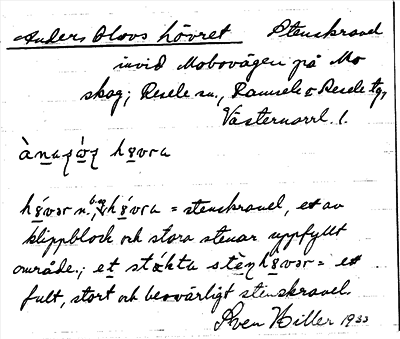 Anders Olovs hövret Stenskravel
invid Mobovägen på Mo
skog; Resele sn., Ramsele o Resele tg,
Västernorrl. l.
hə́vər n., hə́vra = stenskravel, et av
klippblock och stora stenar uppfyllt
område.; et stɔ́kta stèŋhə́vər = et
fult, stort och besvärligt stenskravel.
Sven Hiller 1933